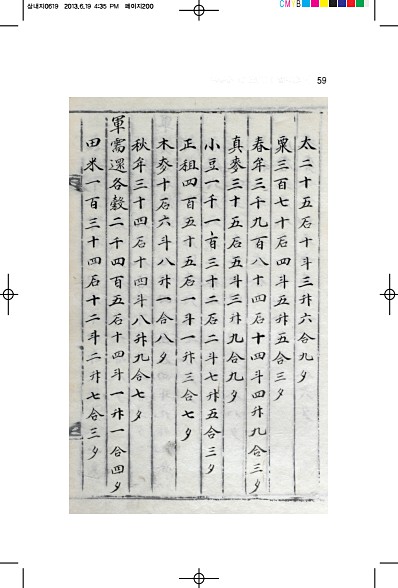 삼내지0619 2013.6.19 4:35 PM 페이지200
CMYB
59
太二十五石十斗三升六合九夕
粟三百七十石四斗五升五合三夕
春牟三千九百八十四石十四斗四升九合三夕
真麥三十五石五斗三升九合九夕
小豆一千一百三十二石二斗七升五合三夕
正租四百五十五石一斗一升三合七夕
木麥十石六斗八升一合八夕
秋牟三十四石十四斗八升九合七夕
軍需還各穀二千四百五石十四斗一升一合四夕
田米一百三十四石十二斗二升七合三夕